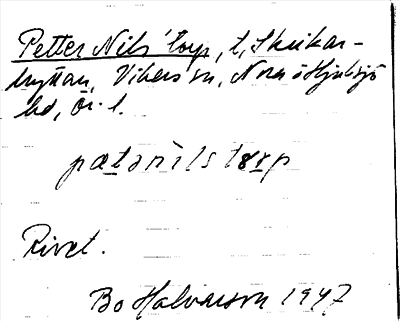 Petter Nils' torp, t, Skrikar-
hyttan, Vikers sn, Nora o Hjulsjö
bd, Ör. l.
pætərnilstɷrp
Rivet.
Bo Halvarson 1947